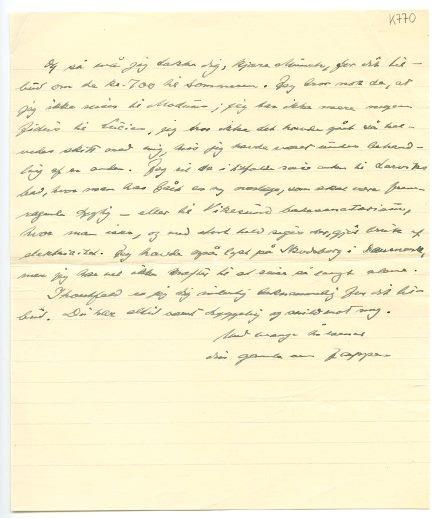 K770
Og så må jeg takke dig, kjære Munch, for dit til-
bud om de kr. 700 til sommeren. Jeg tror nok da, at
jeg ikke reiser til Modum; jeg har ikke mere nogen
til, jeg tror ikke det havde gået så hel-
vedes skitt med mig, hvis jeg havde været under behand-
ling af en anden. Jeg vil da i tilfælde reise enten til Larviks
bad, hvor man har fået en ny, som skal være frem-
ragende dygtig – eller til Vikesund,
hvor man især, og med stort held siges der, gjør bruk af
elektricitet. Jeg havde også lyst på Skodsborg i Danmark,
men jeg har vel ikke kræfter til at reise så langt alene.
I hvertfald er jeg dig inderlig taknemmelig for dit til-
bud. Du har altid været hyggelig og snild mot mig.
Med mange hilsener
din gamle ven Jappe